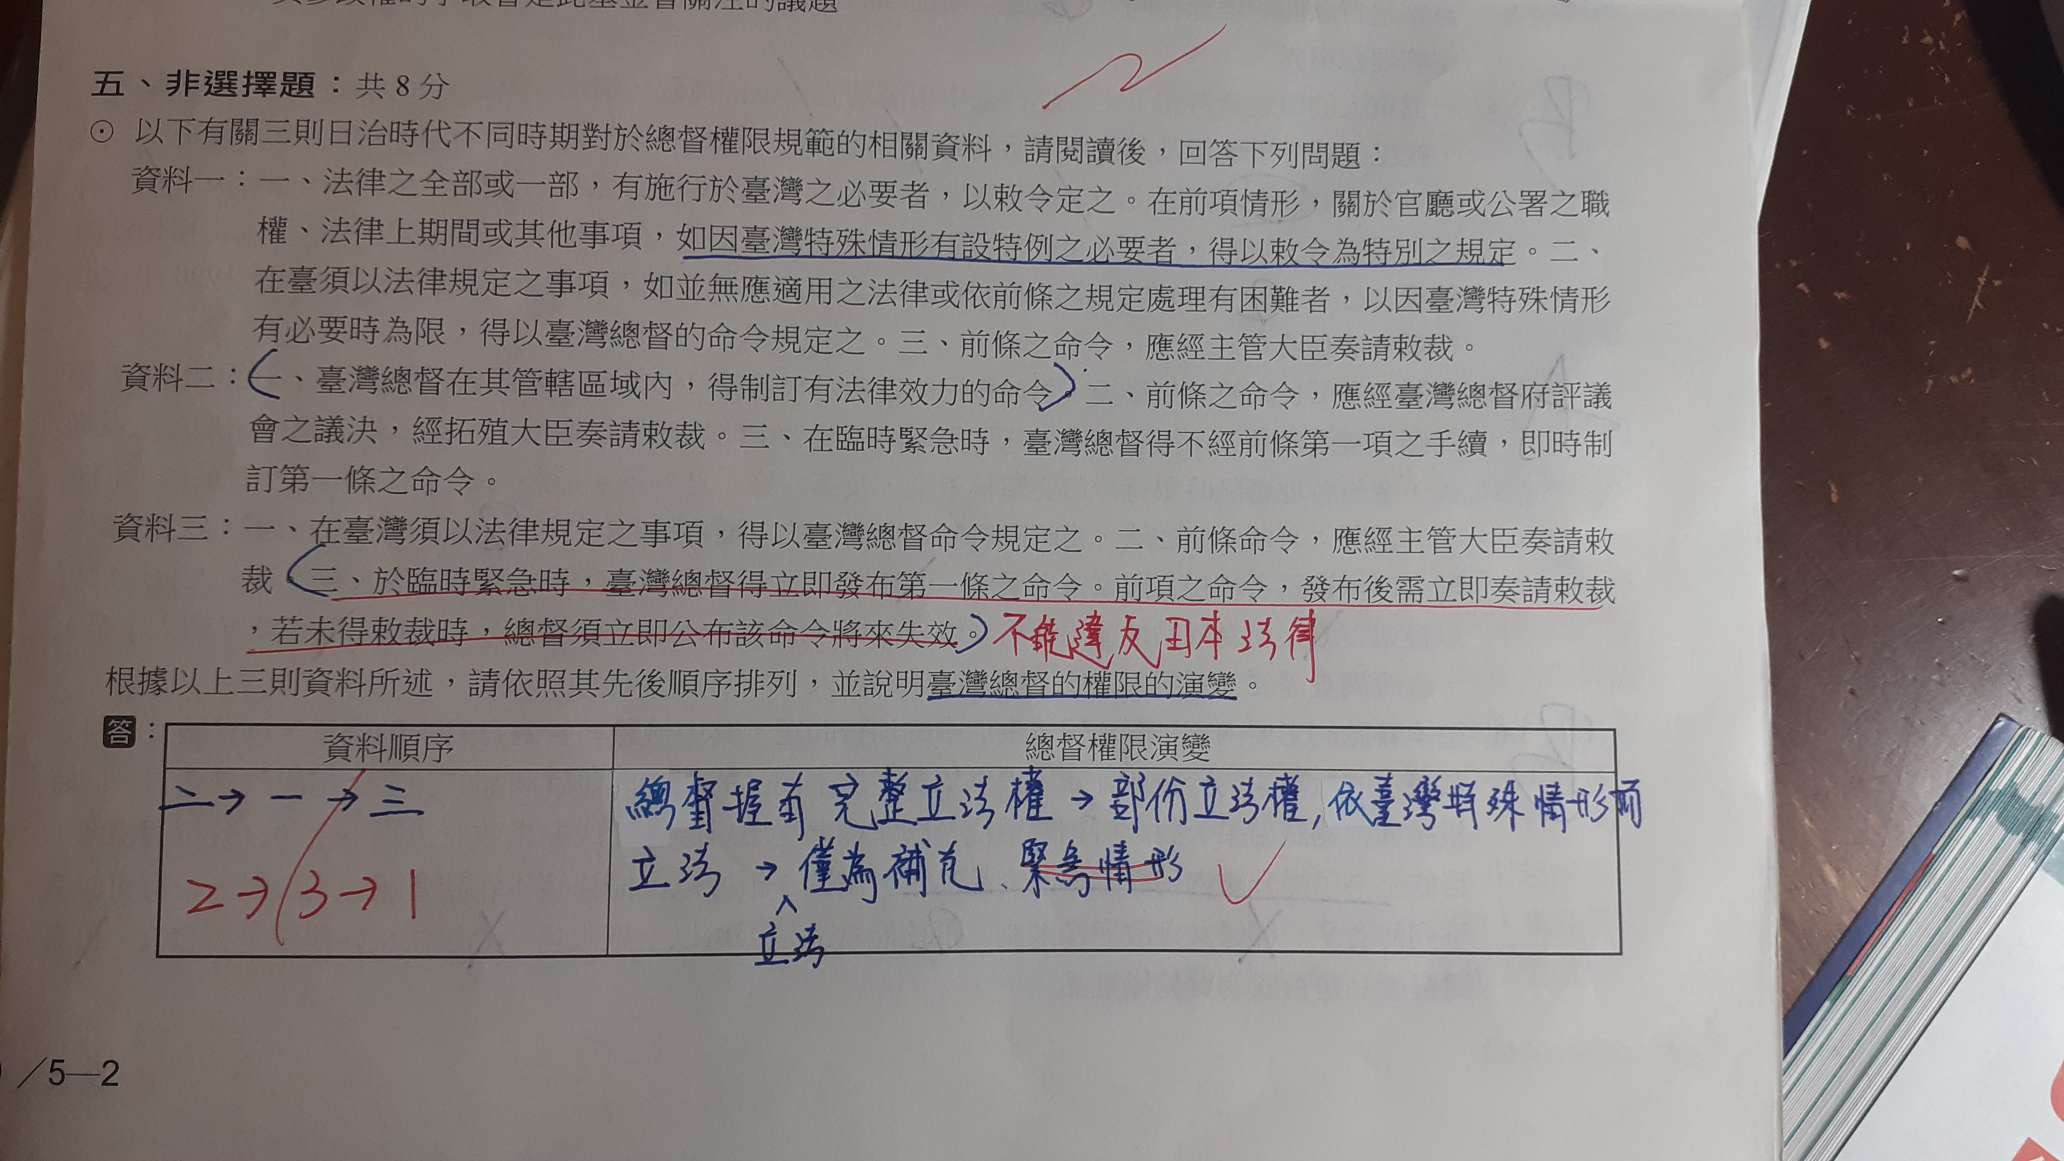 與參政權的爭取皆是此基金會關注的議題
五、非選擇題：共 8 分
⊙ 以下有關三則日治時代不同時期對於總督權限規範的相關資料，請閱讀後，回答下列問題：
資料一：一、法律之全部或一部，有施行於臺灣之必要者，以敕令定之。在前項情形，關於官廳或公署之職
權、法律上期間或其他事項，如因臺灣特殊情形有設特例之必要者，得以敕令為特別之規定。二、
在臺須以法律規定之事項，如並無應適用之法律或依前條之規定處理有困難者，以因臺灣特殊情形
有必要時為限，得以臺灣總督的命令規定之。三、前條之命令，應經主管大臣奏請敕裁。
資料二：一、臺灣總督在其管轄區域內，得制訂有法律效力的命令。二、前條之命令，應經臺灣總督府評議
會之議決，經拓殖大臣奏請敕裁。三、在臨時緊急時，臺灣總督得不經前條第一項之手續，即時制
訂第一條之命令。
資料三：一、在臺灣須以法律規定之事項，得以臺灣總督命令規定之。二、前條命令，應經主管大臣奏請敕
裁。三、於臨時緊急時，臺灣總督得立即發布第一條之命令。前項之命令，發布後需立即奏請敕裁
，若未得敕裁時，總督須立即公布該命令將來失效。不能違反日本法律
根據以上三則資料所述，請依照其先後順序排列，並說明臺灣總督的權限的演變。
答：
資料順序 總督權限演變
二→一→三 總督握有完整立法權→部份立法權，依臺灣特殊情形而
立法→僅為補充、緊急情形
2→3→1
立法
/5—2